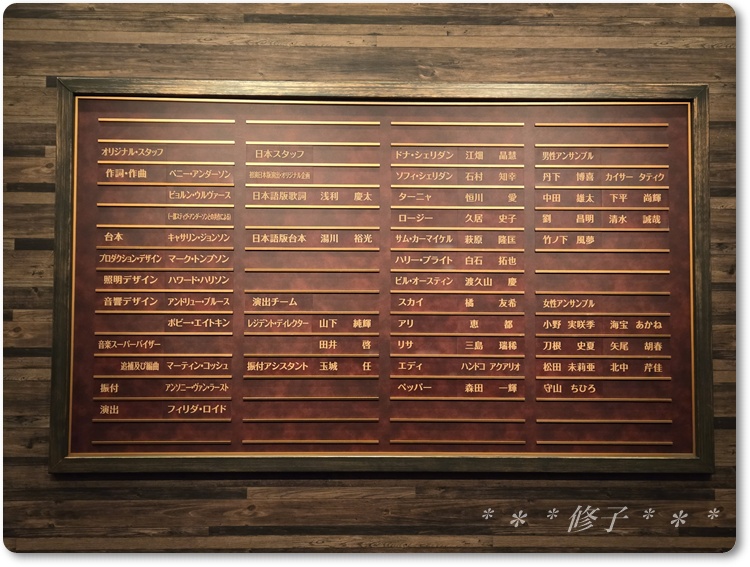 オリジナル・スタッフ
作詞・作曲 ベニー・アンダーソン
ビョルン・ウルヴァース
(一部スティッグ・アンダーソンとの共作による)
台本 キャサリン・ジョンソン
プロダクション・デザイン マーク・トンプソン
照明デザイン ハワード・ハリソン
音響デザイン アンドリュー・ブルース
ボビー・エイトキン
音楽スーパーバイザー
追補及び編曲 マーティン・コッシュ
振付 アンソニー・ヴァン・ラースト
演出 フィリダ・ロイド
日本スタッフ
初演日本版演出・オリジナル企画
日本語版歌詞 浅利 慶太
日本語版台本 湯川 裕光
演出チーム
レジデント・ディレクター 山下 純輝
田井 啓
振付アシスタント 玉城 任
ドナ・シェリダン 江畑 晶慧
ソフィ・シェリダン 石村 知幸
ターニャ 恒川 愛
ロージー 久居 史子
サム・カーマイケル 萩原 隆匡
ハリー・ブライト 白石 拓也
ビル・オースティン 渡久山 慶
スカイ 橘 友希
アリ 恵 都
リサ 三島 瑞稀
エディ ハンドコ アクアリオ
ペッパー 森田 一輝
男性アンサンブル
丹下 博喜 カイサー タティク
中田 雄太 下平 尚輝
劉 昌明 清水 誠哉
竹ノ下 風夢
女性アンサンブル
小野 実咲季 海宝 あかね
刀根 史夏 矢尾 胡春
松田 未莉亜 北中 芹佳
守山 ちひろ
* * * 修子 * * *